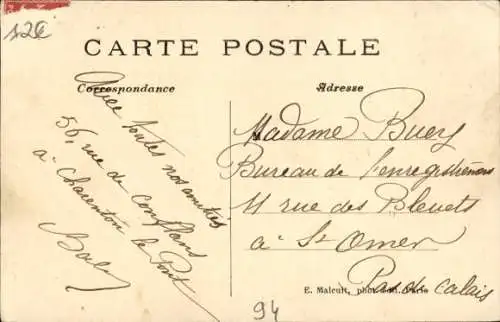 12€
CARTE POSTALE
Correspondance
Adresse
Avec toutes nos amitiés
56, rue de Conflans
à Charenton le Pont
Madame Buery
Bureau de l'enregistrement
11 rue des Bleuets
à St Omer
Pas de Calais
E. Malcuit, phot. édit. Paris
94